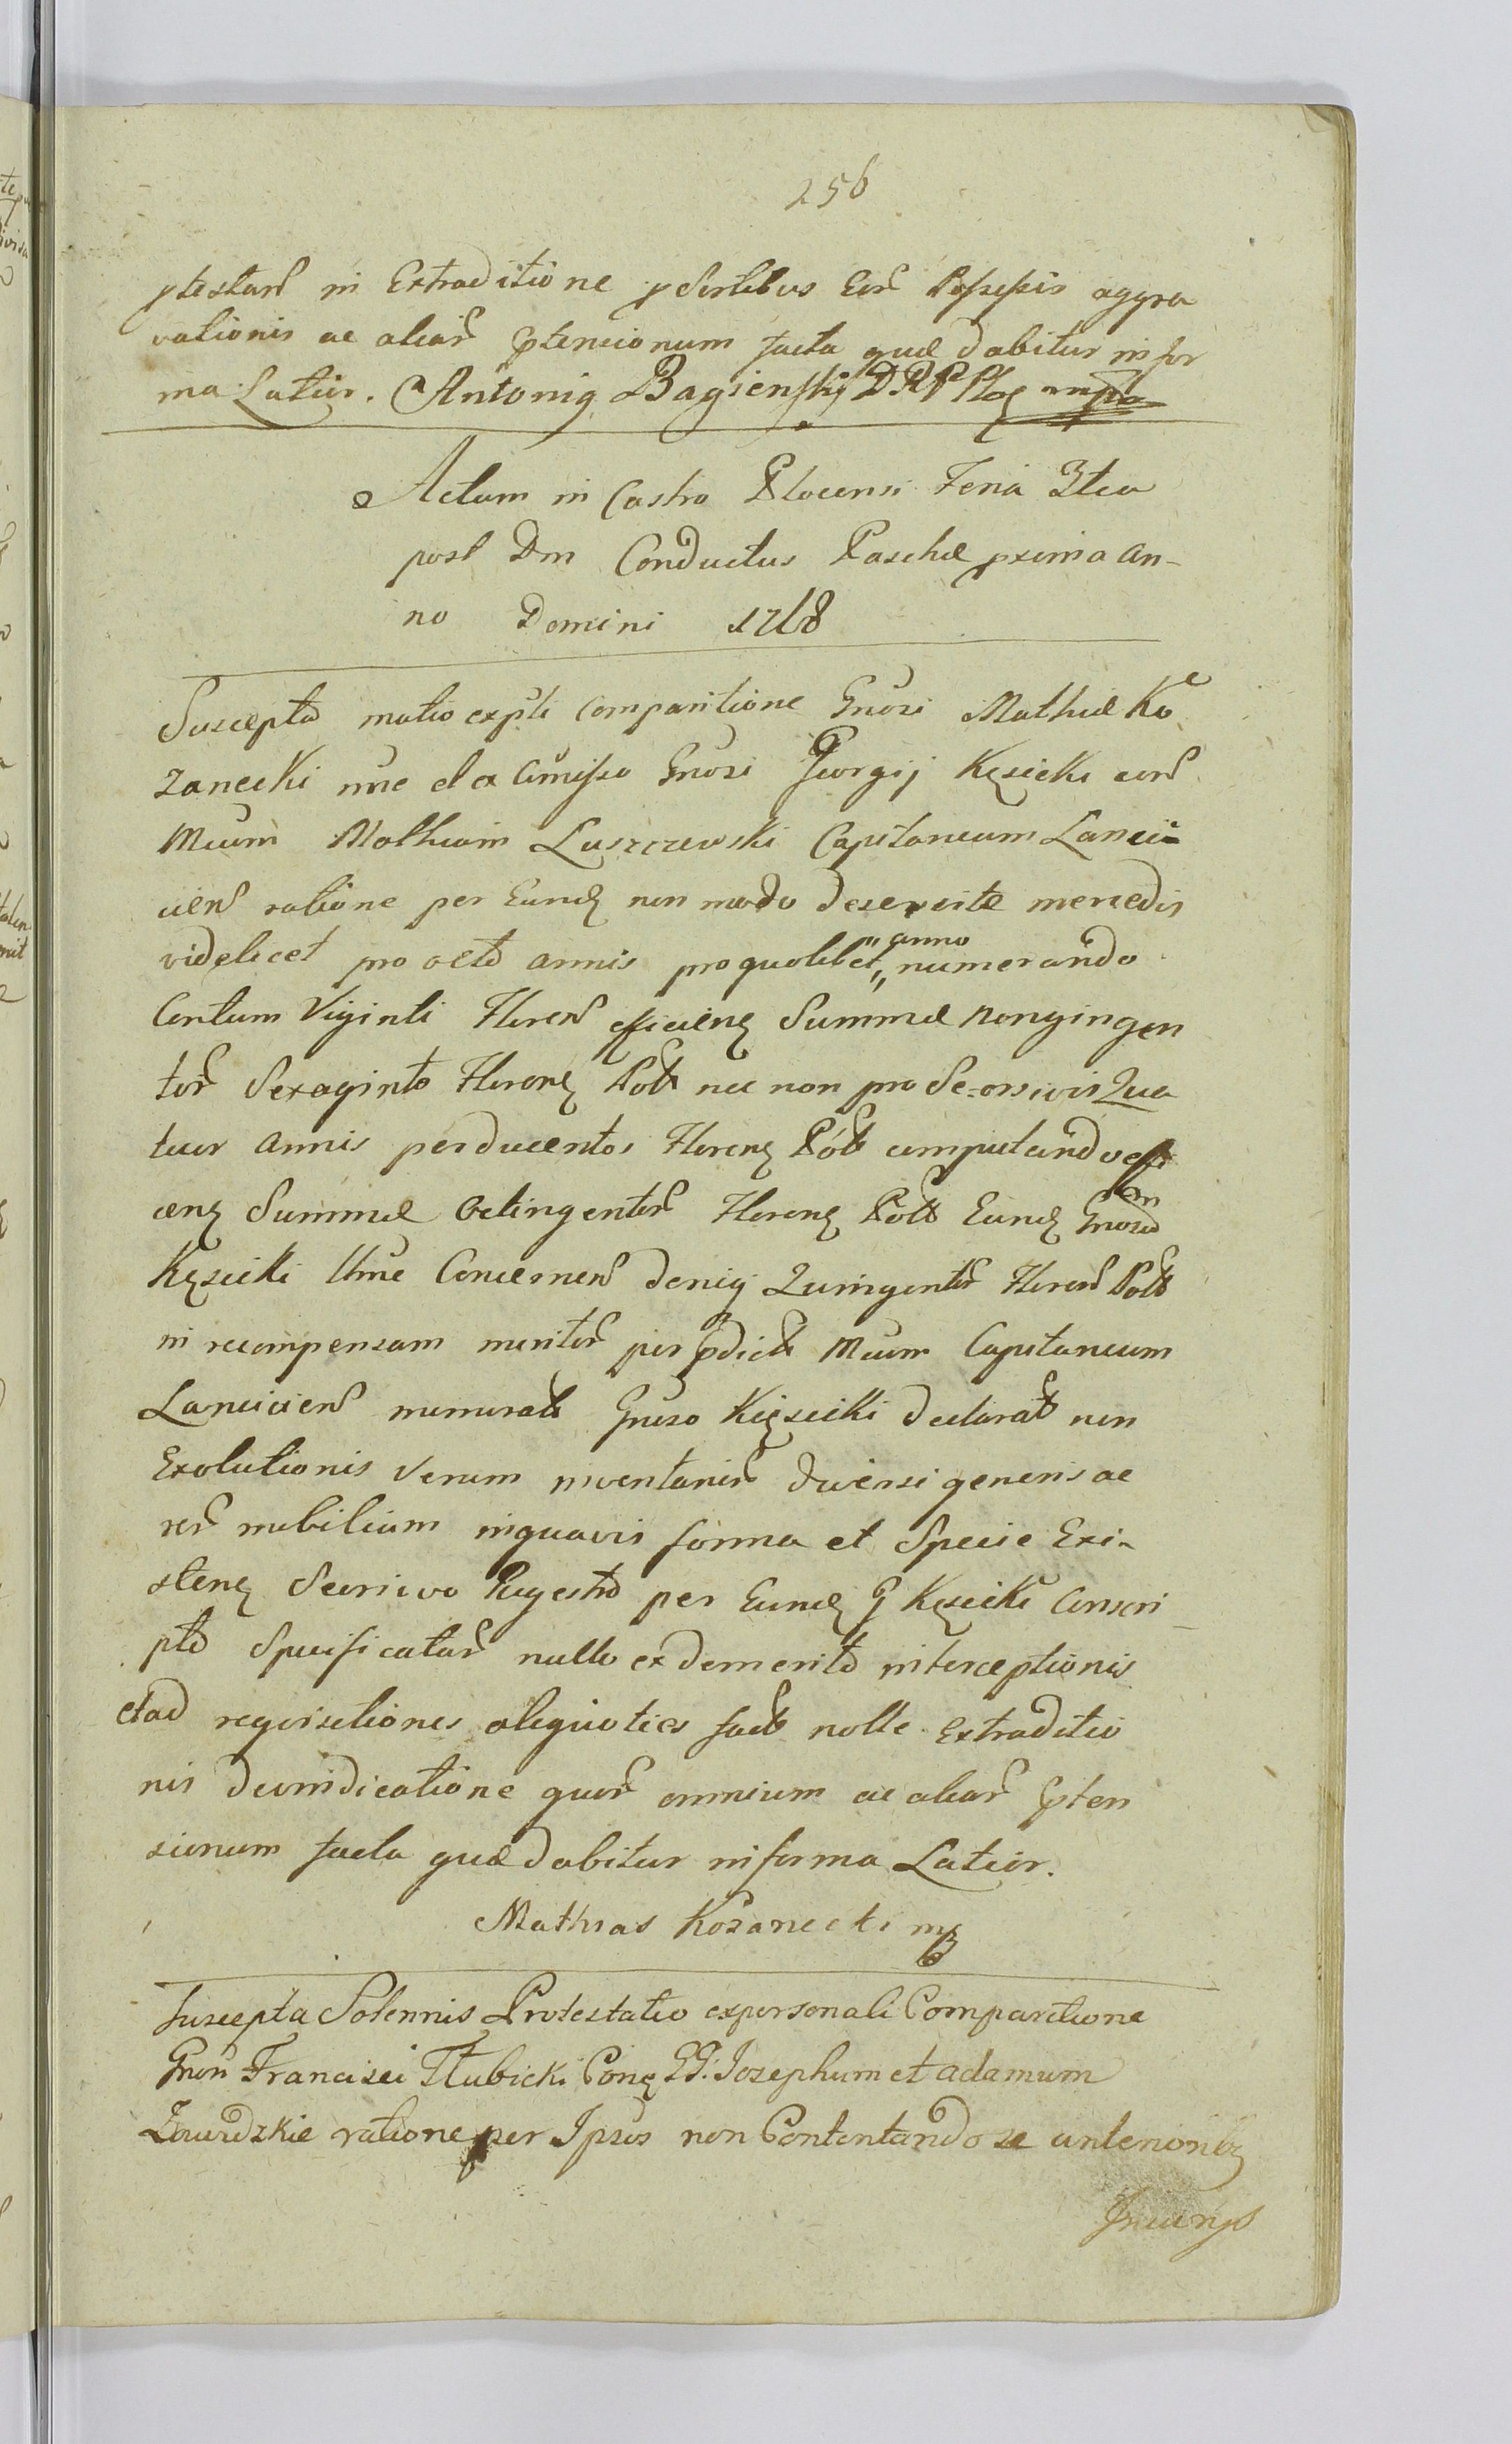 256
ptestan in Extraditione p Sortibus Eor Possessis aggra
vationis ac aliar ptensionum facta quæ dabitur in for
ma Latior. Antonig Bagienskj DRP Ploc mpa
Actum in Castro Plocensi Feria 3tia
post Dm Conductus Paschæ proxima An-
no Domini 1768
Suscepta matio ex psti Comparitione Gnosi Mathiæ Ko
zanecki nne et ex Comisso Gnosi Georgij Kęsicki cor
Mcum Mathiam Luszczewski Capitaneum Lanci
cien ratione per Eundę non modo deservitæ mercedis
videlicet pro octo annis pro quolibet anno numerando
Centum Viginti Floren efficienę Summæ nongingen
tor Sexaginta Florenę Pol nec non pro Seorsivis Qua
tuor annis per ducentos Florenę Pol computando effi
cienę Summæ Octingentor Florenę Pol Eundę Gnosum
Kęsicki Ume Concernen deniq Quingentor Floren Pol
in recompensam meritor per pdict Mcum Capitaneum
Lancicien numerat Gnoso Kięsicki declarat non
Exolutionis Verum inventarior diversi generis ac
rer mobilium in quavis forma et Specie Exi-
stenę Seorsivo Regestro per Eundę G Kęsicki Conscri
pto Specificatar nullo ex demerito interceptionis
et ad requisitiones aliquoties fact nolle Extraditio
nis Devindicatione quor omnium ac aliar pten
sionum facta quæ dabitur in forma Latior.
Mathias Kozanecki mp
Suscepta Solennis Protestatio ex personali Comparitione
Gnosi Francisci Tłubicki Conę GG. Josephum et Adamum
Zawidzkie ratione per Ipsos non Contentando se anterioribę
Incurijs